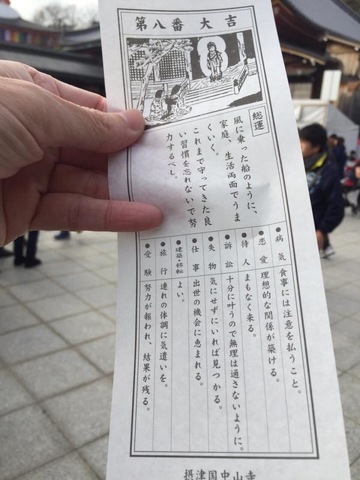 第八番 大吉
総運
風に乗った船のように、
家庭、生活両面でうま
くいく。
これまで守ってきた良
い習慣を忘れないで努
力するべし。
●病気 食事には注意を払うこと。
●恋愛 理想的な関係が築ける。
●待人 まもなく来る。
●訴訟 十分に叶うので無理は通さないように。
●失物 気にせずにいれば見つかる。
●仕事 出世の機会に恵まれる。
●建築・移転 よい。
●旅行 連れの体調に気遣いを。
●受験 努力が報われ、結果が残る。
摂津国中山寺